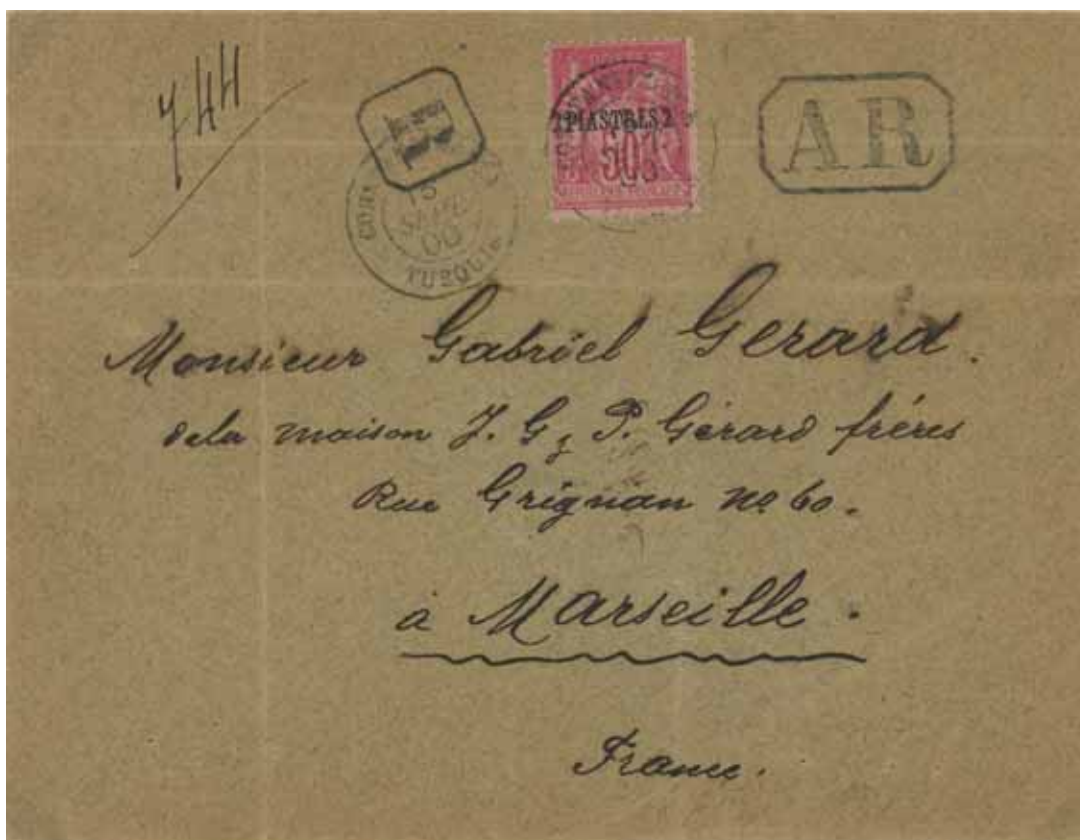 744
R
2 PIASTRES 2
50
A R
TURQUIE
Monsieur Gabriël Gerard.
dela maison J. G. & P. Gérard frères
Rue Grignan no 60.
à Marseille.
France.